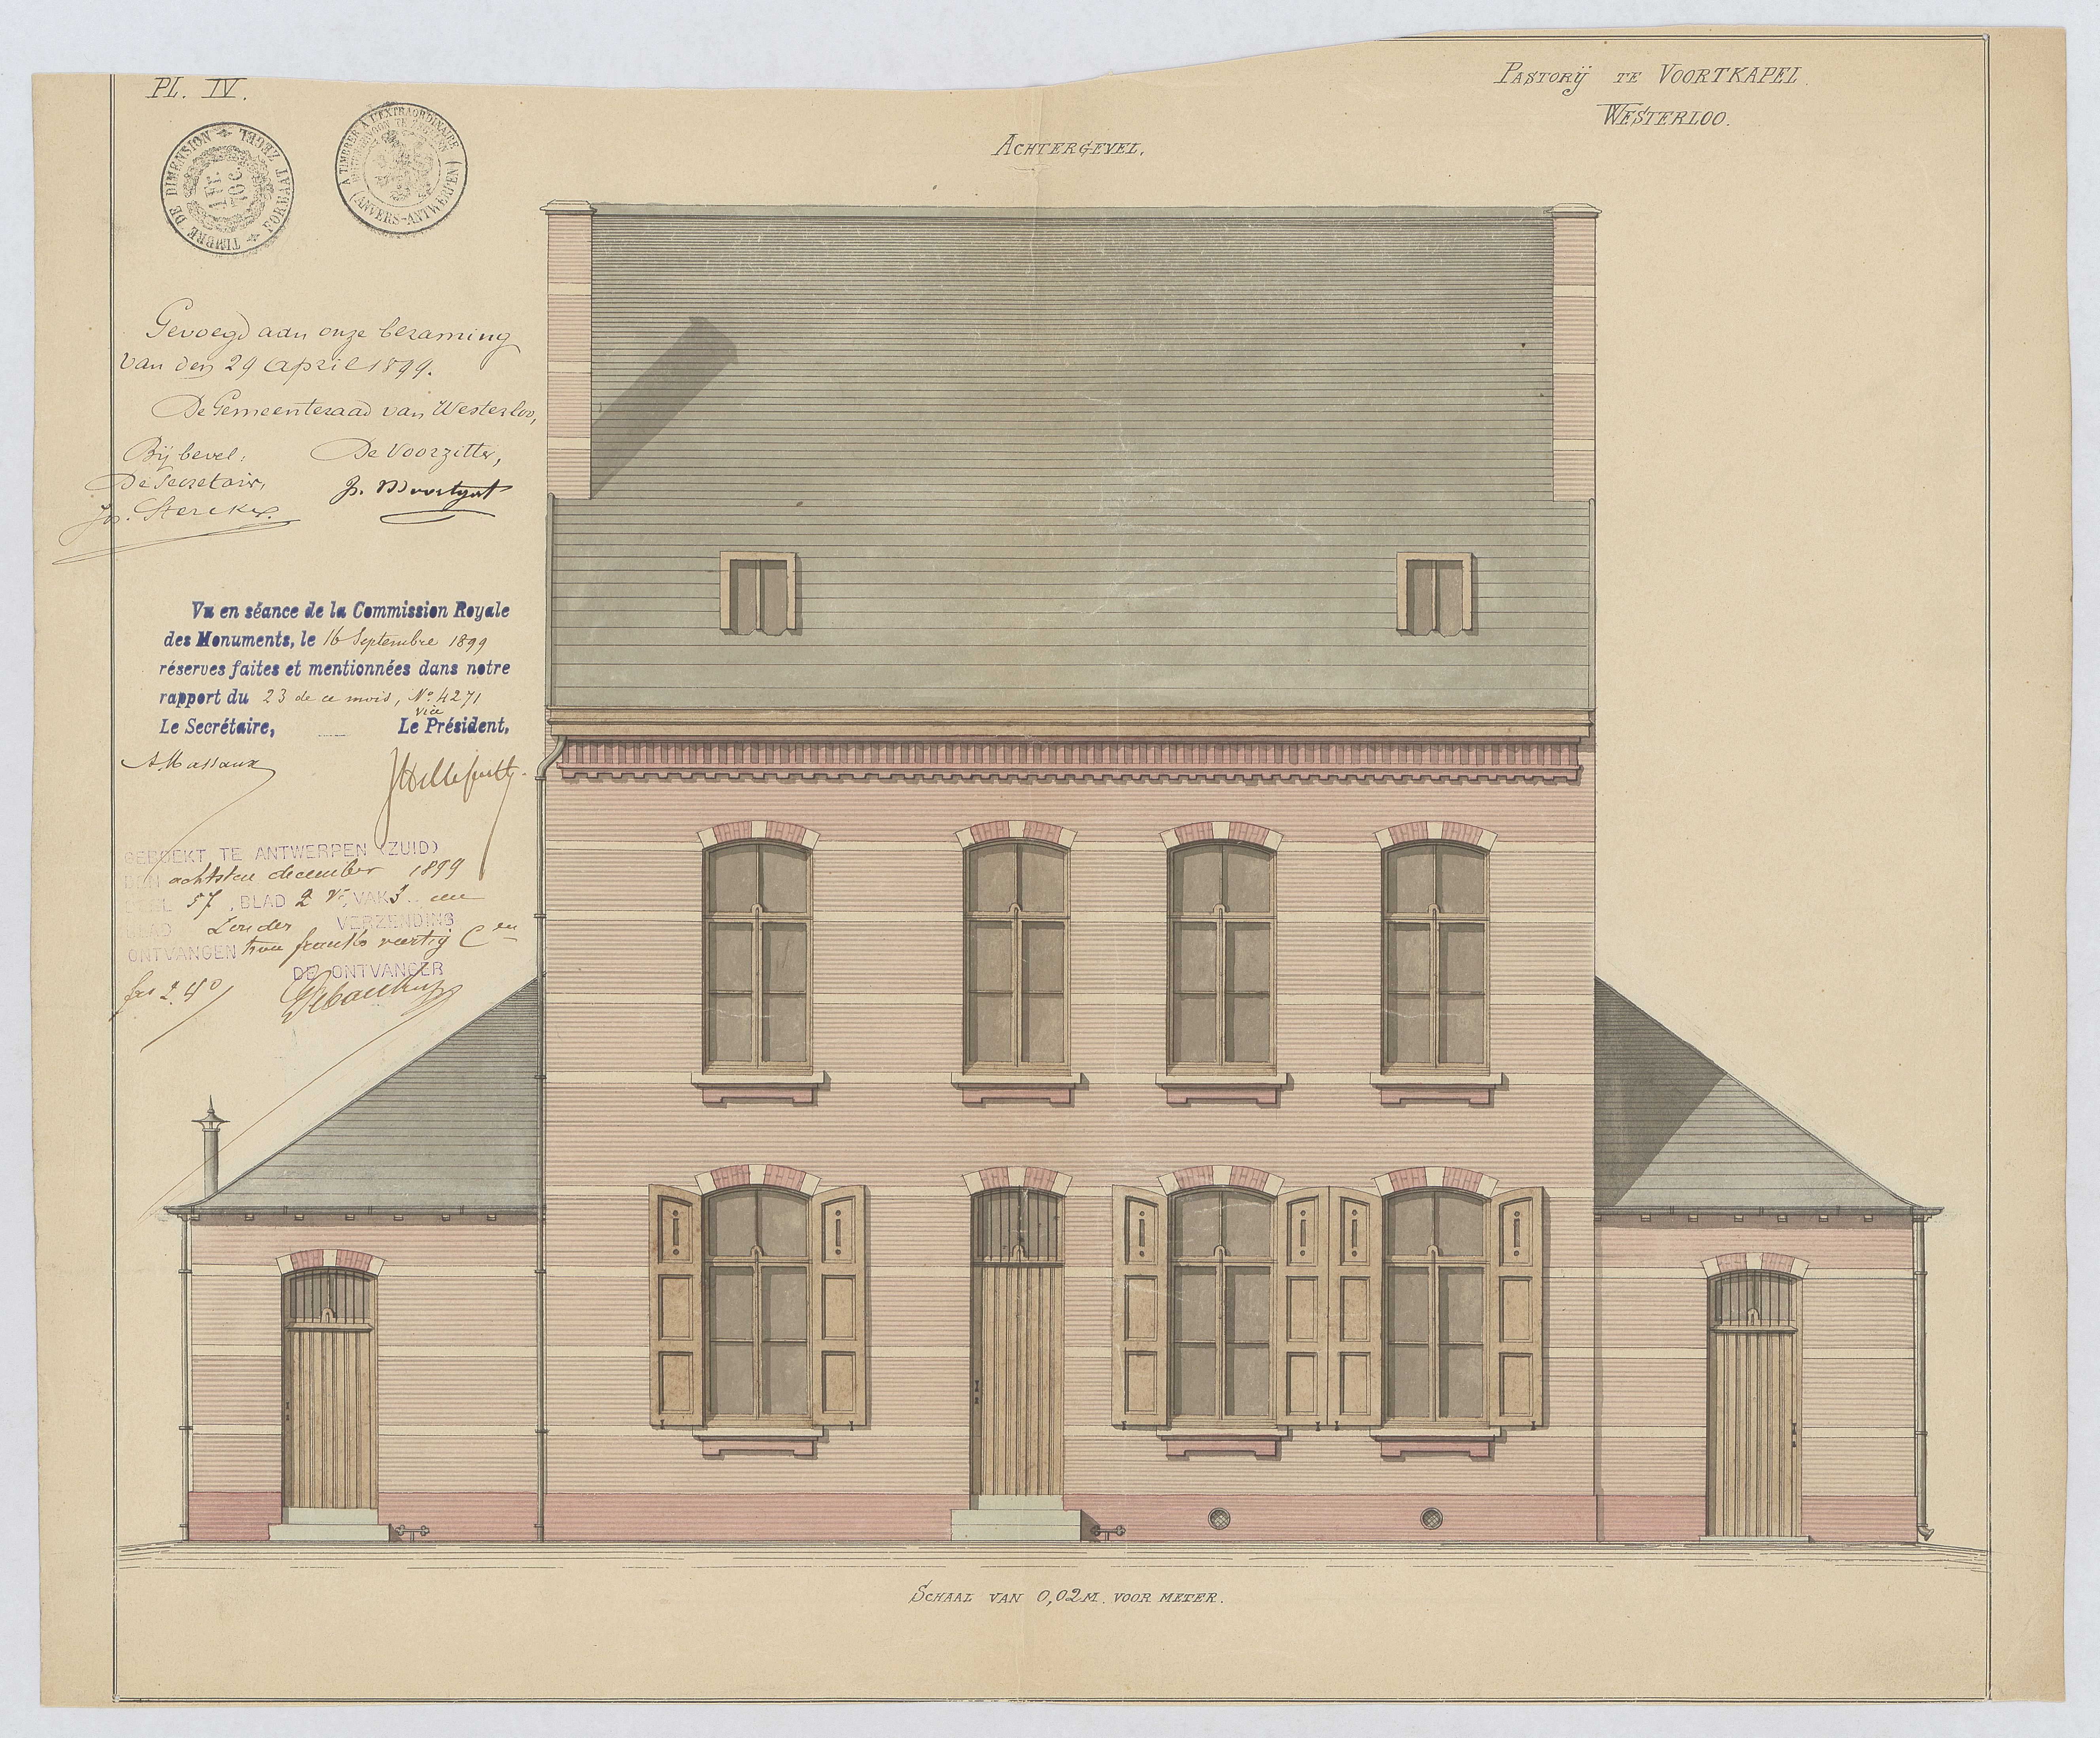 PL. IV.
PASTORIJ TE VOORTKAPEL.
WESTERLOO.
ACHTERGEVEL.
TIMBRE DE DIMENSION FORMAAT ZEGEL
1 Fr. 70 C.
A TIMBRER A L'EXTRAORDINAIRE
(ANVERS-ANTWERPEN)
Gevoegd aan onze beraming
van den 29 April 1899.
De Gemeenteraad van Westerloo,
Bij bevel: De Voorzitter,
De Secretair,
Jos. Sterckx.
Vu en séance de la Commission Royale
des Monuments, le 16 Septembre 1899
réserves faites et mentionnées dans notre
rapport du 23 de ce mois, No. 4271
Le Secrétaire, vice Le Président,
A. Massaux
GEBOEKT TE ANTWERPEN (ZUID)
DEN achtsten december 1899
DEEL 57, BLAD 2 Vo, VAK 3 een
BLAD Zonder VERZENDING
ONTVANGEN twee franks veertig Cen
DE ONTVANGER
frs 2.40
SCHAAL VAN 0,02M. VOOR METER.